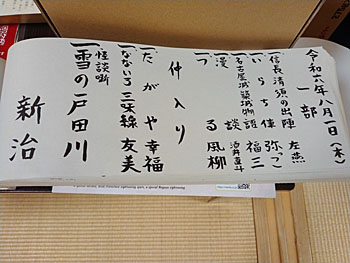 令和六年八月一日(木)
一部
一、信長清須の出陣 左燕
一、いらち俥 弥っこ
一、名古屋城築城物語 福三
一、漫談 酒井直斗
一、つる 風柳
仲入り
一、だがや 幸福
一、なないろ三味線 友美
一、怪談噺
雪の戸田川
新治